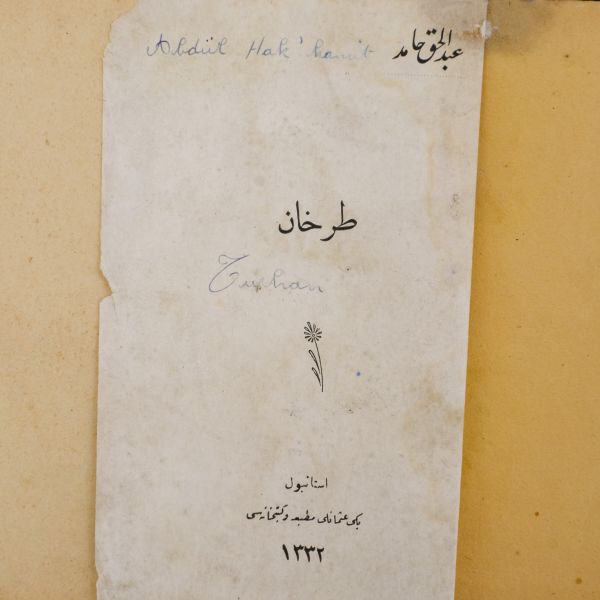 Abdül Hak' hamit عبدالحق حامد
طرخان
Turhan
استانبول
یکی عثمانلی مطبعه و کتبخانه‌سی
١٣٣٢